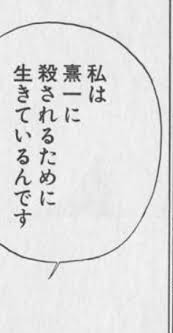 私は
熹一に
殺されるために
生きているんです